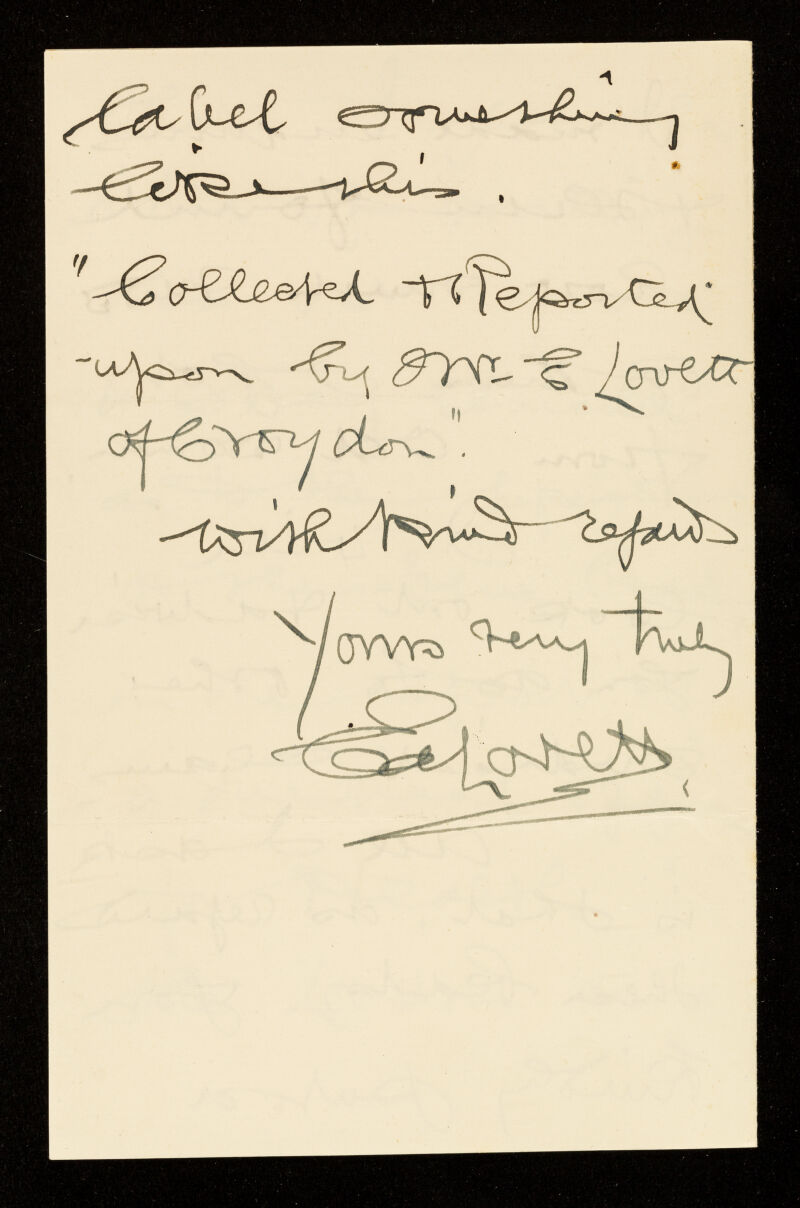 label something
like this.
"Collected & Reported
upon by Mr. E Lovett
of Croydon".
with kind regards
Yours very truly
Ed Lovett.